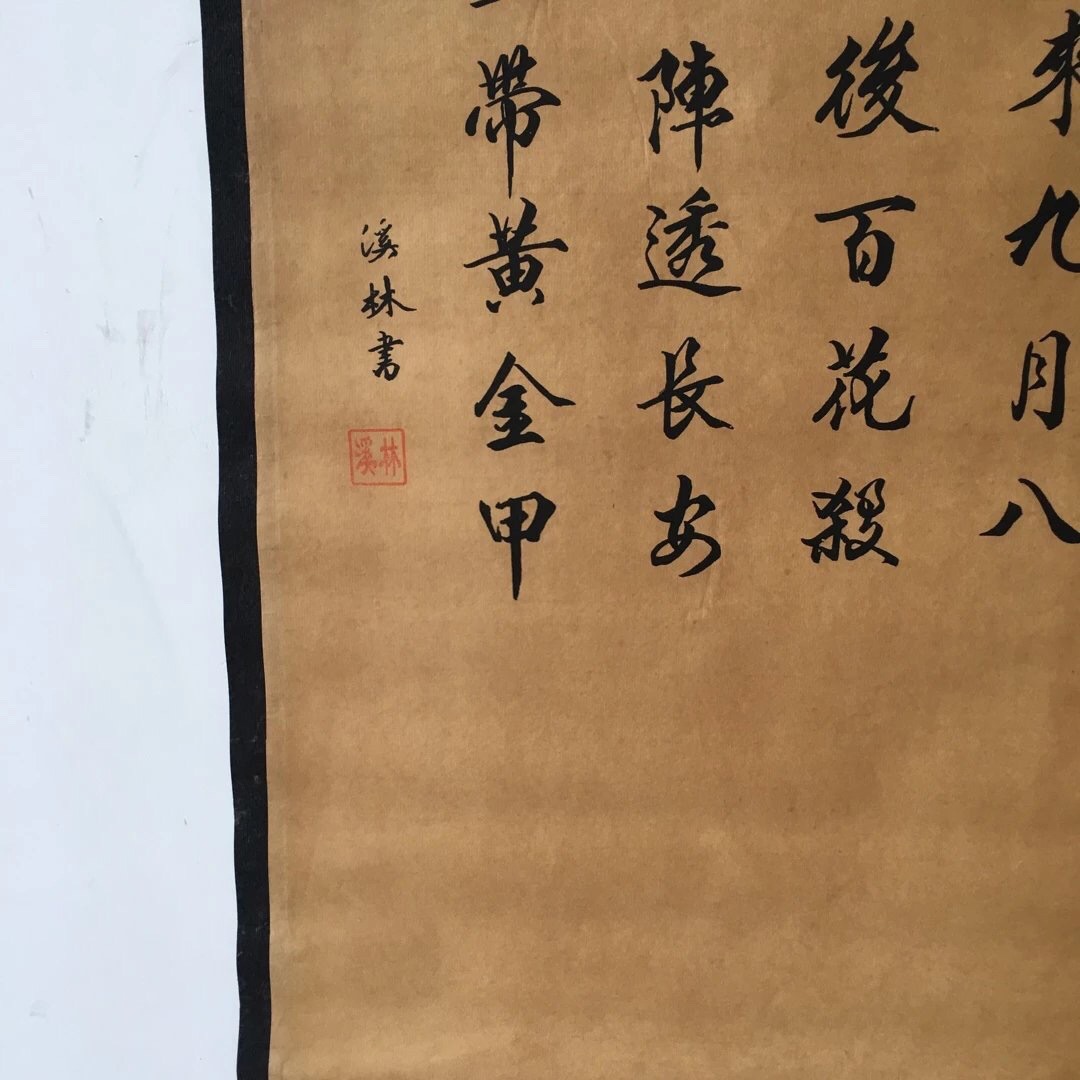 來九月八
後百花殺
陣透長安
帶黃金甲
溪林書
林溪